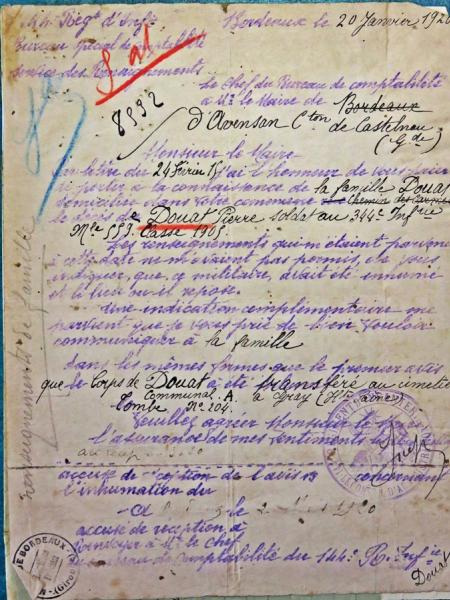 144 Regt d'Infie Bordeaux le 20 Janvier 1920
Bureau Spécial de comptabilité
Service des Renseignements
8992
Le Chef du Bureau de comptabilité
à Mr le Maire de Bordeaux
d'Avensan Cton de Castelnau
(Gde)
Monsieur le Maire
Par lettre du 24 Février 15 j'ai l'honneur de vous
à porter à la connaissance de la famille Douat
domiciliée dans votre commune Chemin des
le décès de Douat Pierre soldat au 344e Infrie
Mle 553 Classe 1905
Les renseignements qui m'étaient parvenus
à cette date ne m'avaient pas permis, de vous
indiquer, que ce militaire, avait été inhumé
et le lieu où il repose.
Une indication complémentaire me
parvient que je vous prie de bien vouloir
communiquer à la famille
dans les mêmes formes que le premier avis
que le corps de Douat a été transféré au cimetière
Communal A. à Gray (Hte Saône)
Tombe No 104.
Veuillez agréer Monsieur le
l'assurance de mes sentiments
accusé de réception de l'avis concernant
l'inhumation du
le 1920
accusé de réception à
renvoyer à Mr le Chef
de Bureau de Comptabilité du 144e R. Infie
Douat
renseignements de famille
DE BORDEAUX